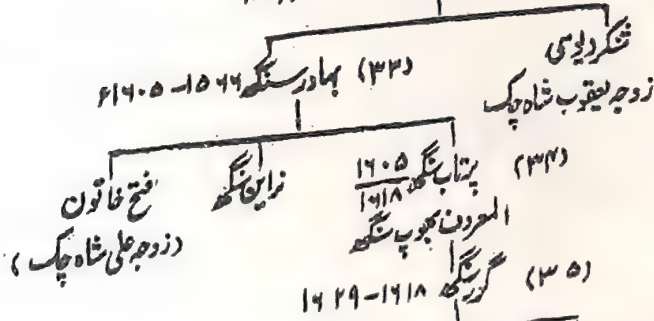 شنکر دیوی
زوجہ یعقوب شاہ چک
(۳۳) بہادر سنگھ ۱۵۶۶-۱۶۰۵ء
(۳۴) پرتاب سنگھ ۱۶۰۵/۱۶۱۸
المعروف بھوپ سنگھ
نراین سنگھ
فتح خاتون
(زوجہ علی شاہ چک)
(۳۵) گور سنگھ ۱۶۱۸-۱۶۲۹